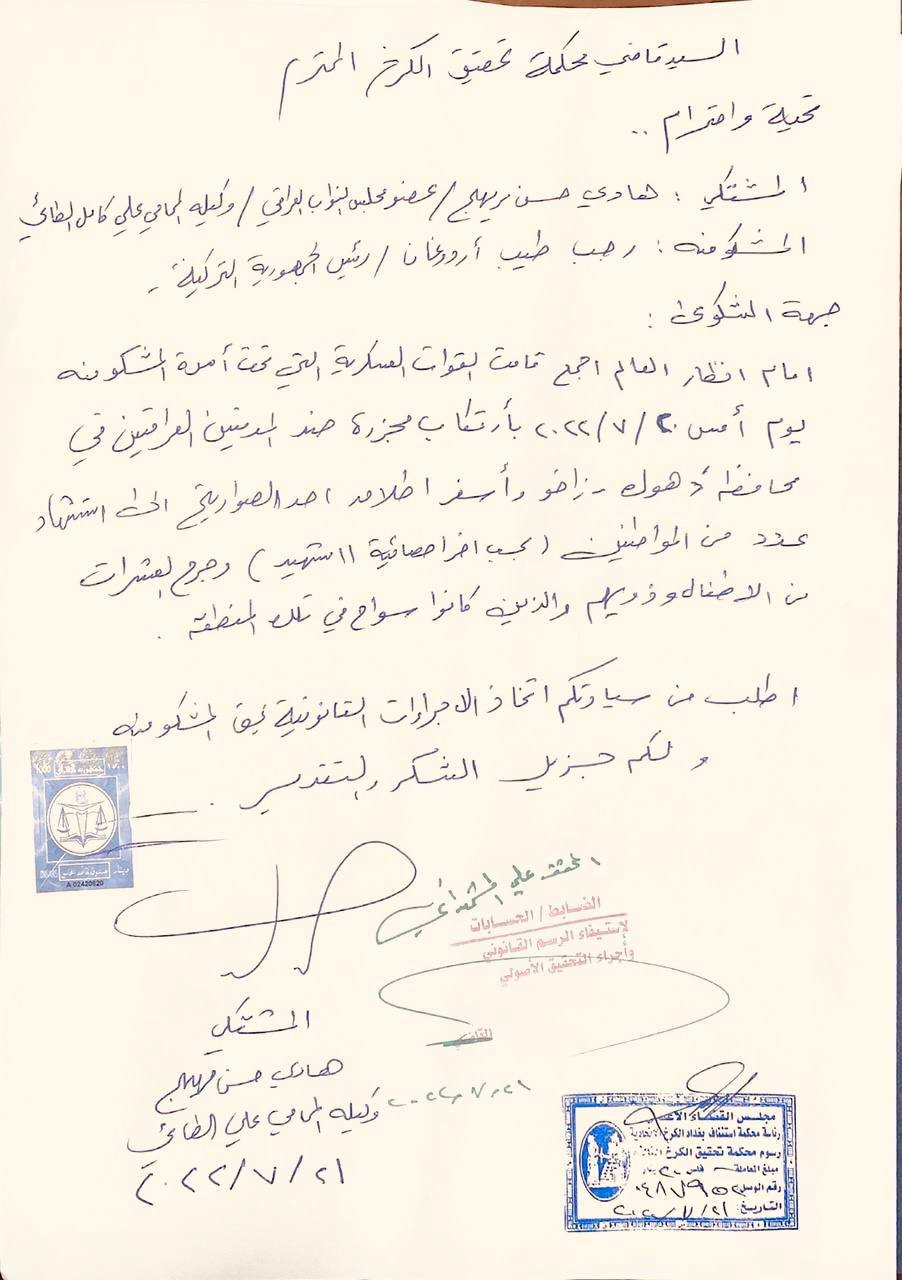 السيد قاضي محكمة تحقيق الكرخ المحترم
تحية واحترام ..
المشتكي : هادي حسن مريهج / عضو مجلس النواب العراقي / وكيله المحامي علي كامل الطائي
المشكو منه : رجب طيب أردوغان / رئيس الجمهورية التركية
جهة الشكوى :
امام انظار العالم اجمع قامت القوات العسكرية التي تحت أمرة المشكو منه
يوم أمس ٢٠٢٢/٧/٢٠ بأرتكاب مجزرة ضد المدنين العراقين في
محافظة دهوك - زاخو وأسفر اطلاق احد الصواريخ الى استشهاد
عدد من المواطنين ( بحسب اخر احصائية ١١ شهيد ) وجرح العشرات
من الاطفال وذويهم والذين كانوا سواح في تلك المنطقة .
اطلب من سيادتكم اتخاذ الاجراءات القانونية بحق المشكو منه
ولكم جزيل الشكر والتقدير .
دينار
A 02420620
المحقق علي
الضابط / الحسابات
لإستيفاء الرسم القانوني
وأجراء التحقيق الأصولي
القاضي
٢٠٢٢/٧/٢١
المشتكي
هادي حسن مريهج
وكيله المحامي علي الطائي
٢٠٢٢/٧/٢١
مجلس القضاء الأعلى
رئاسة محكمة استئناف بغداد الكرخ الاتحادية
رسوم محكمة تحقيق الكرخ
مبلغ المعاملة فلس
رقم الوصل
التاريخ